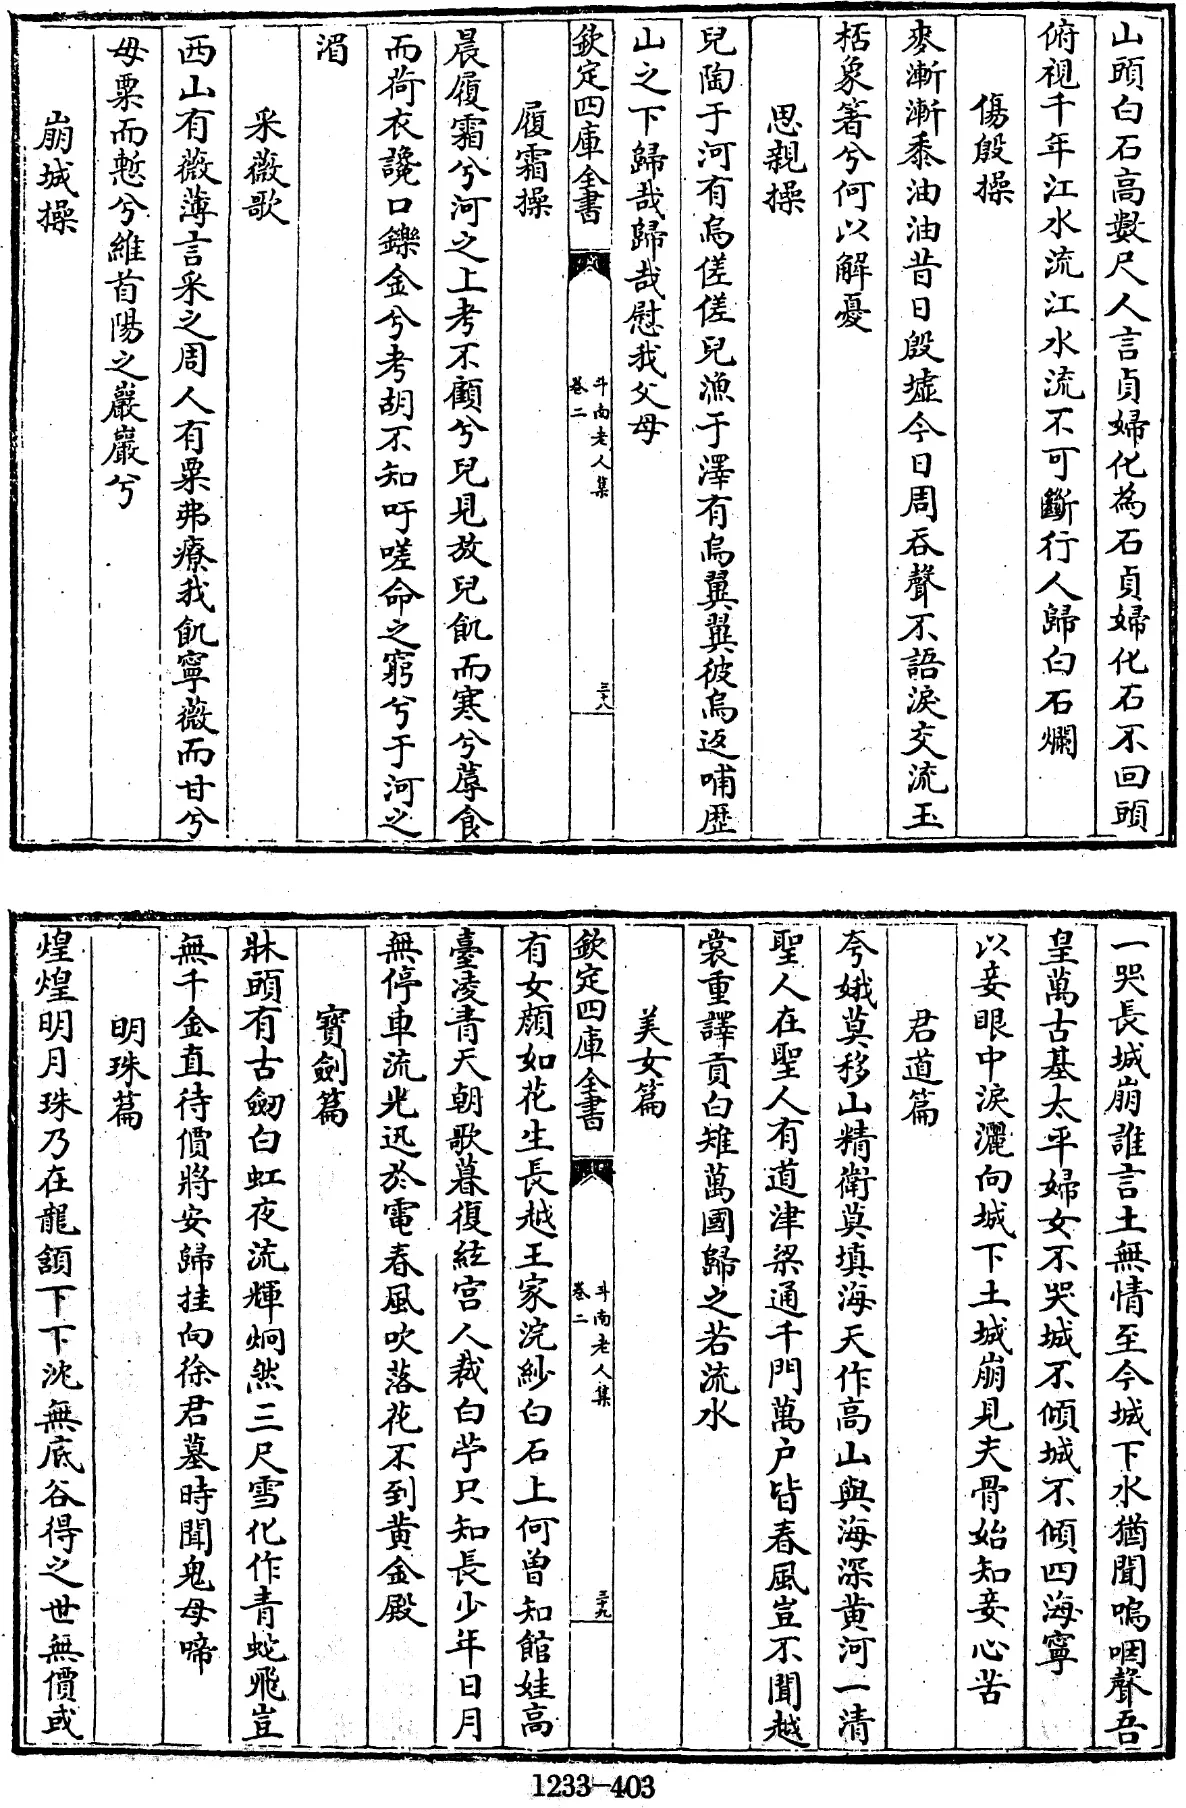 山頭白石高數尺人言貞婦化為石貞婦化石不回頭
俯視千年江水流江水流不可斷行人歸白石爛
傷殷操
麥漸漸黍油油昔日殷墟今日周吞聲不語淚交流玉
桮象箸兮何以解憂
思親操
兒陶于河有鳥傞傞兒漁于澤有鳥翼翼彼鳥返哺歴
山之下歸哉歸哉慰我父母
欽定四庫全書
斗南老人集
卷二
三十八
履霜操
晨履霜兮河之上考不顧兮兒見放兒飢而寒兮蓐食
而荷衣讒口鑠金兮考胡不知吁嗟命之窮兮于河之
湄
采薇歌
西山有薇薄言采之周人有粟弗療我飢寧薇而甘兮
毋粟而慙兮維首陽之巖巖兮
崩城操
一哭長城崩誰言土無情至今城下水猶聞嗚咽聲吾
皇萬古基太平婦女不哭城不傾城不傾四海寧
以妾眼中淚灑向城下土城崩見夫骨始知妾心苦
君道篇
夸娥莫移山精衛莫填海天作高山與海深黄河一清
聖人在聖人有道津梁通千門萬户皆春風豈不聞越
裳重譯貢白雉萬國歸之若流水
美女篇
欽定四庫全書
斗南老人集
卷二
三十九
有女顔如花生長越王家浣紗白石上何曽知館娃高
臺凌青天朝歌暮復絃宫人裁白苧只知長少年日月
無停車流光迅於電春風吹落花不到黄金殿
寳劍篇
牀頭有古劒白虹夜流輝炯然三尺雪化作青蛇飛豈
無千金直待價將安歸挂向徐君墓時聞鬼母啼
明珠篇
煌煌明月珠乃在龍頷下下沈無底谷得之世無價或
1233-403